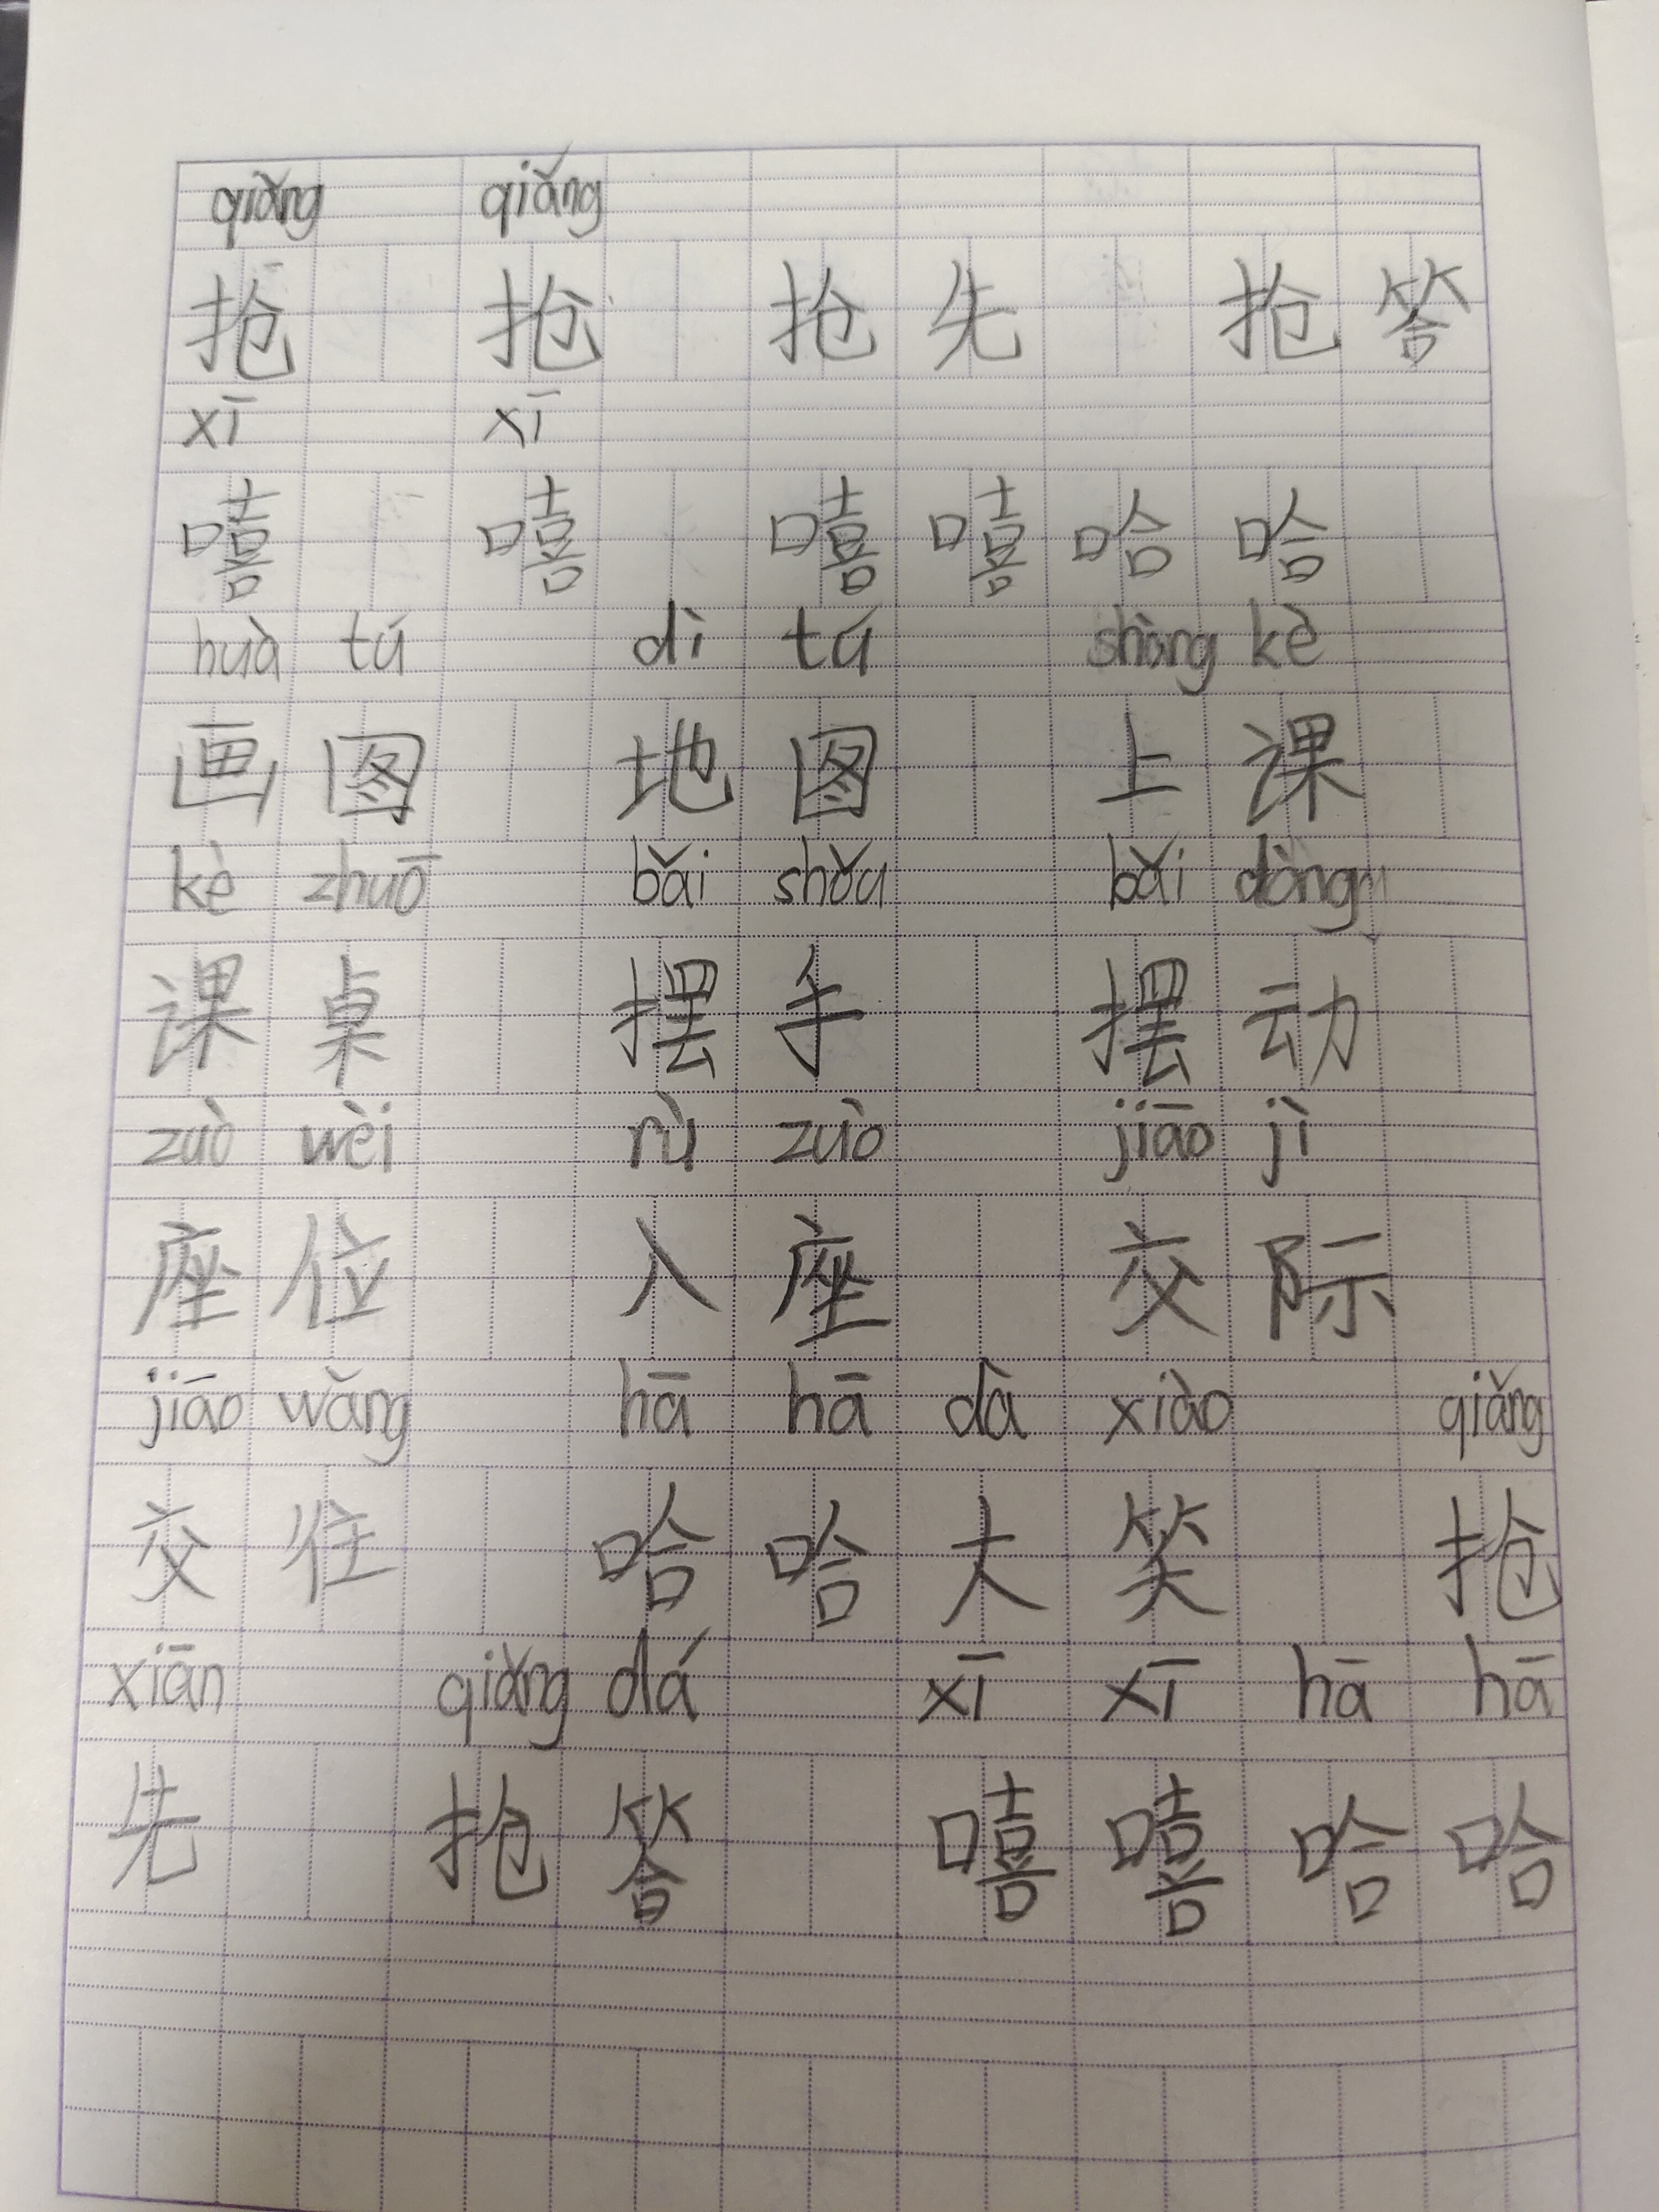 qiǎng qiǎng
抢 抢 抢先 抢答
xī xī
嘻 嘻 嘻嘻哈哈
huà tú dì tú shàng kè
画图 地图 上课
kè zhuō bǎi shǒu bǎi dòng
课桌 摆手 摆动
zuò wèi rù zuò jiāo jì
座位 入座 交际
jiāo wǎng hā hā dà xiào qiǎng
交往 哈哈大笑 抢
xiān qiǎng dá xī xī hā hā
先 抢答 嘻嘻哈哈